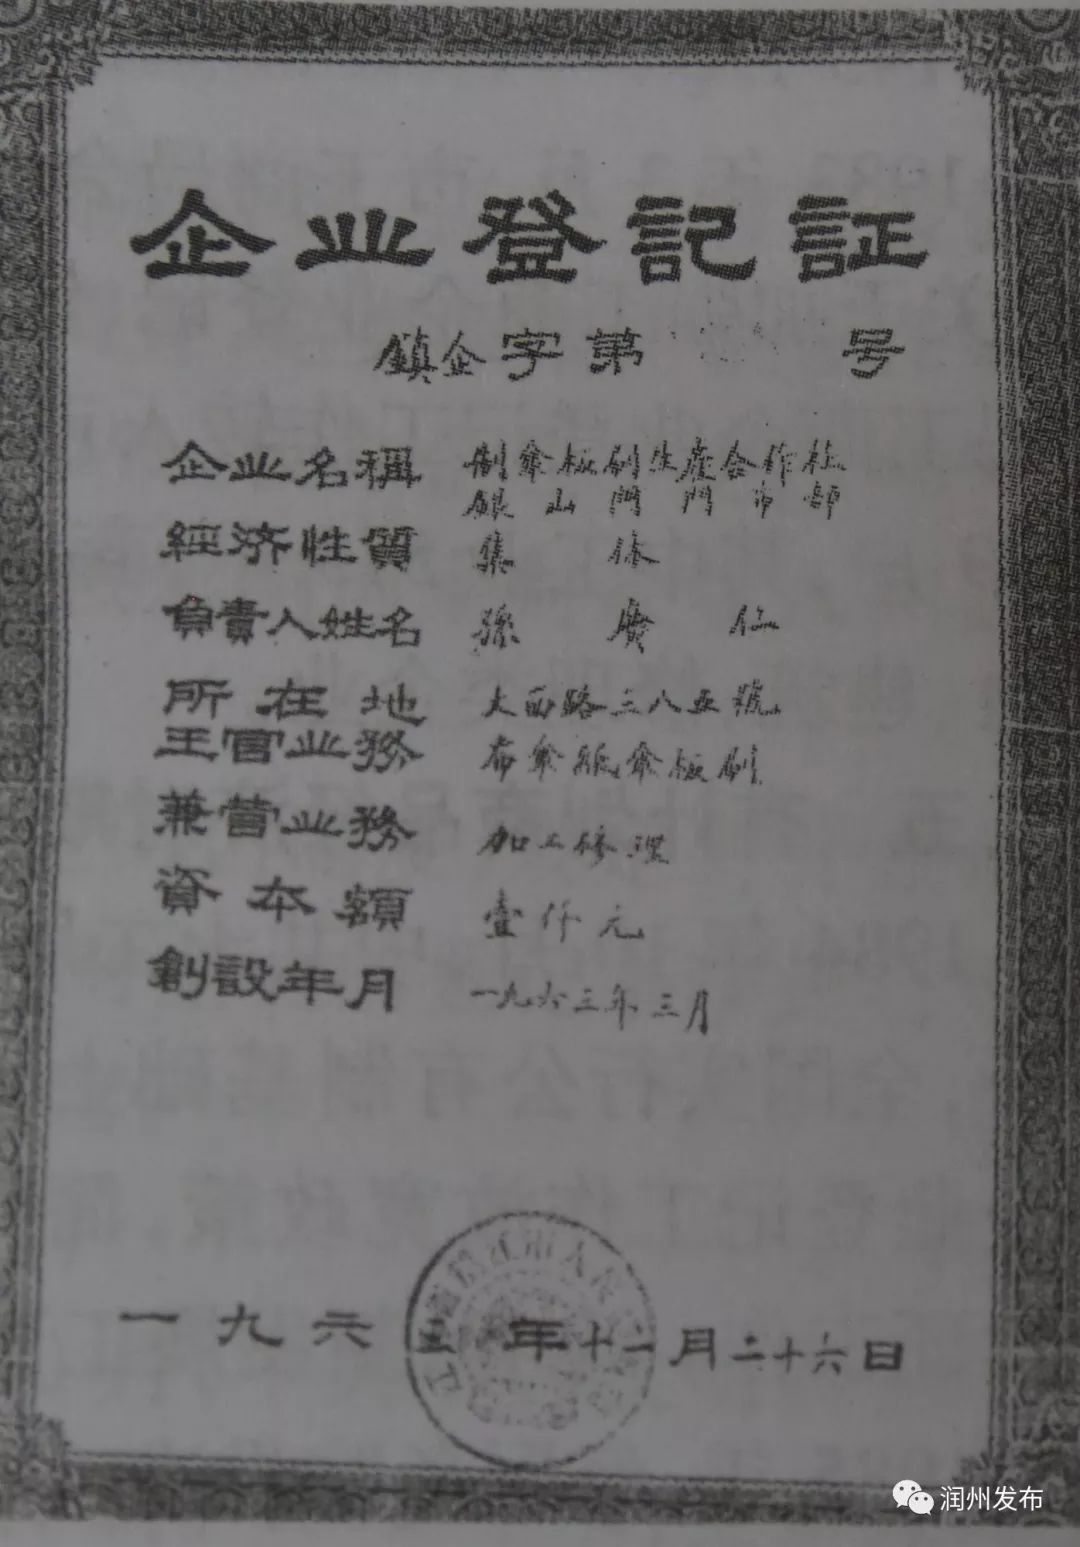 企业登記証
鎮企字第 号
企业名稱 制傘板刷生產合作社
銀山門門市部
經济性質 集体
負責人姓名 孫廣仁
所在地 大西路三八五號
主营业務 布傘紙傘板刷
兼营业務 加工修理
資本額 壹仟元
創設年月 一九六三年三月
一九六三年十一月二十六日
润州发布